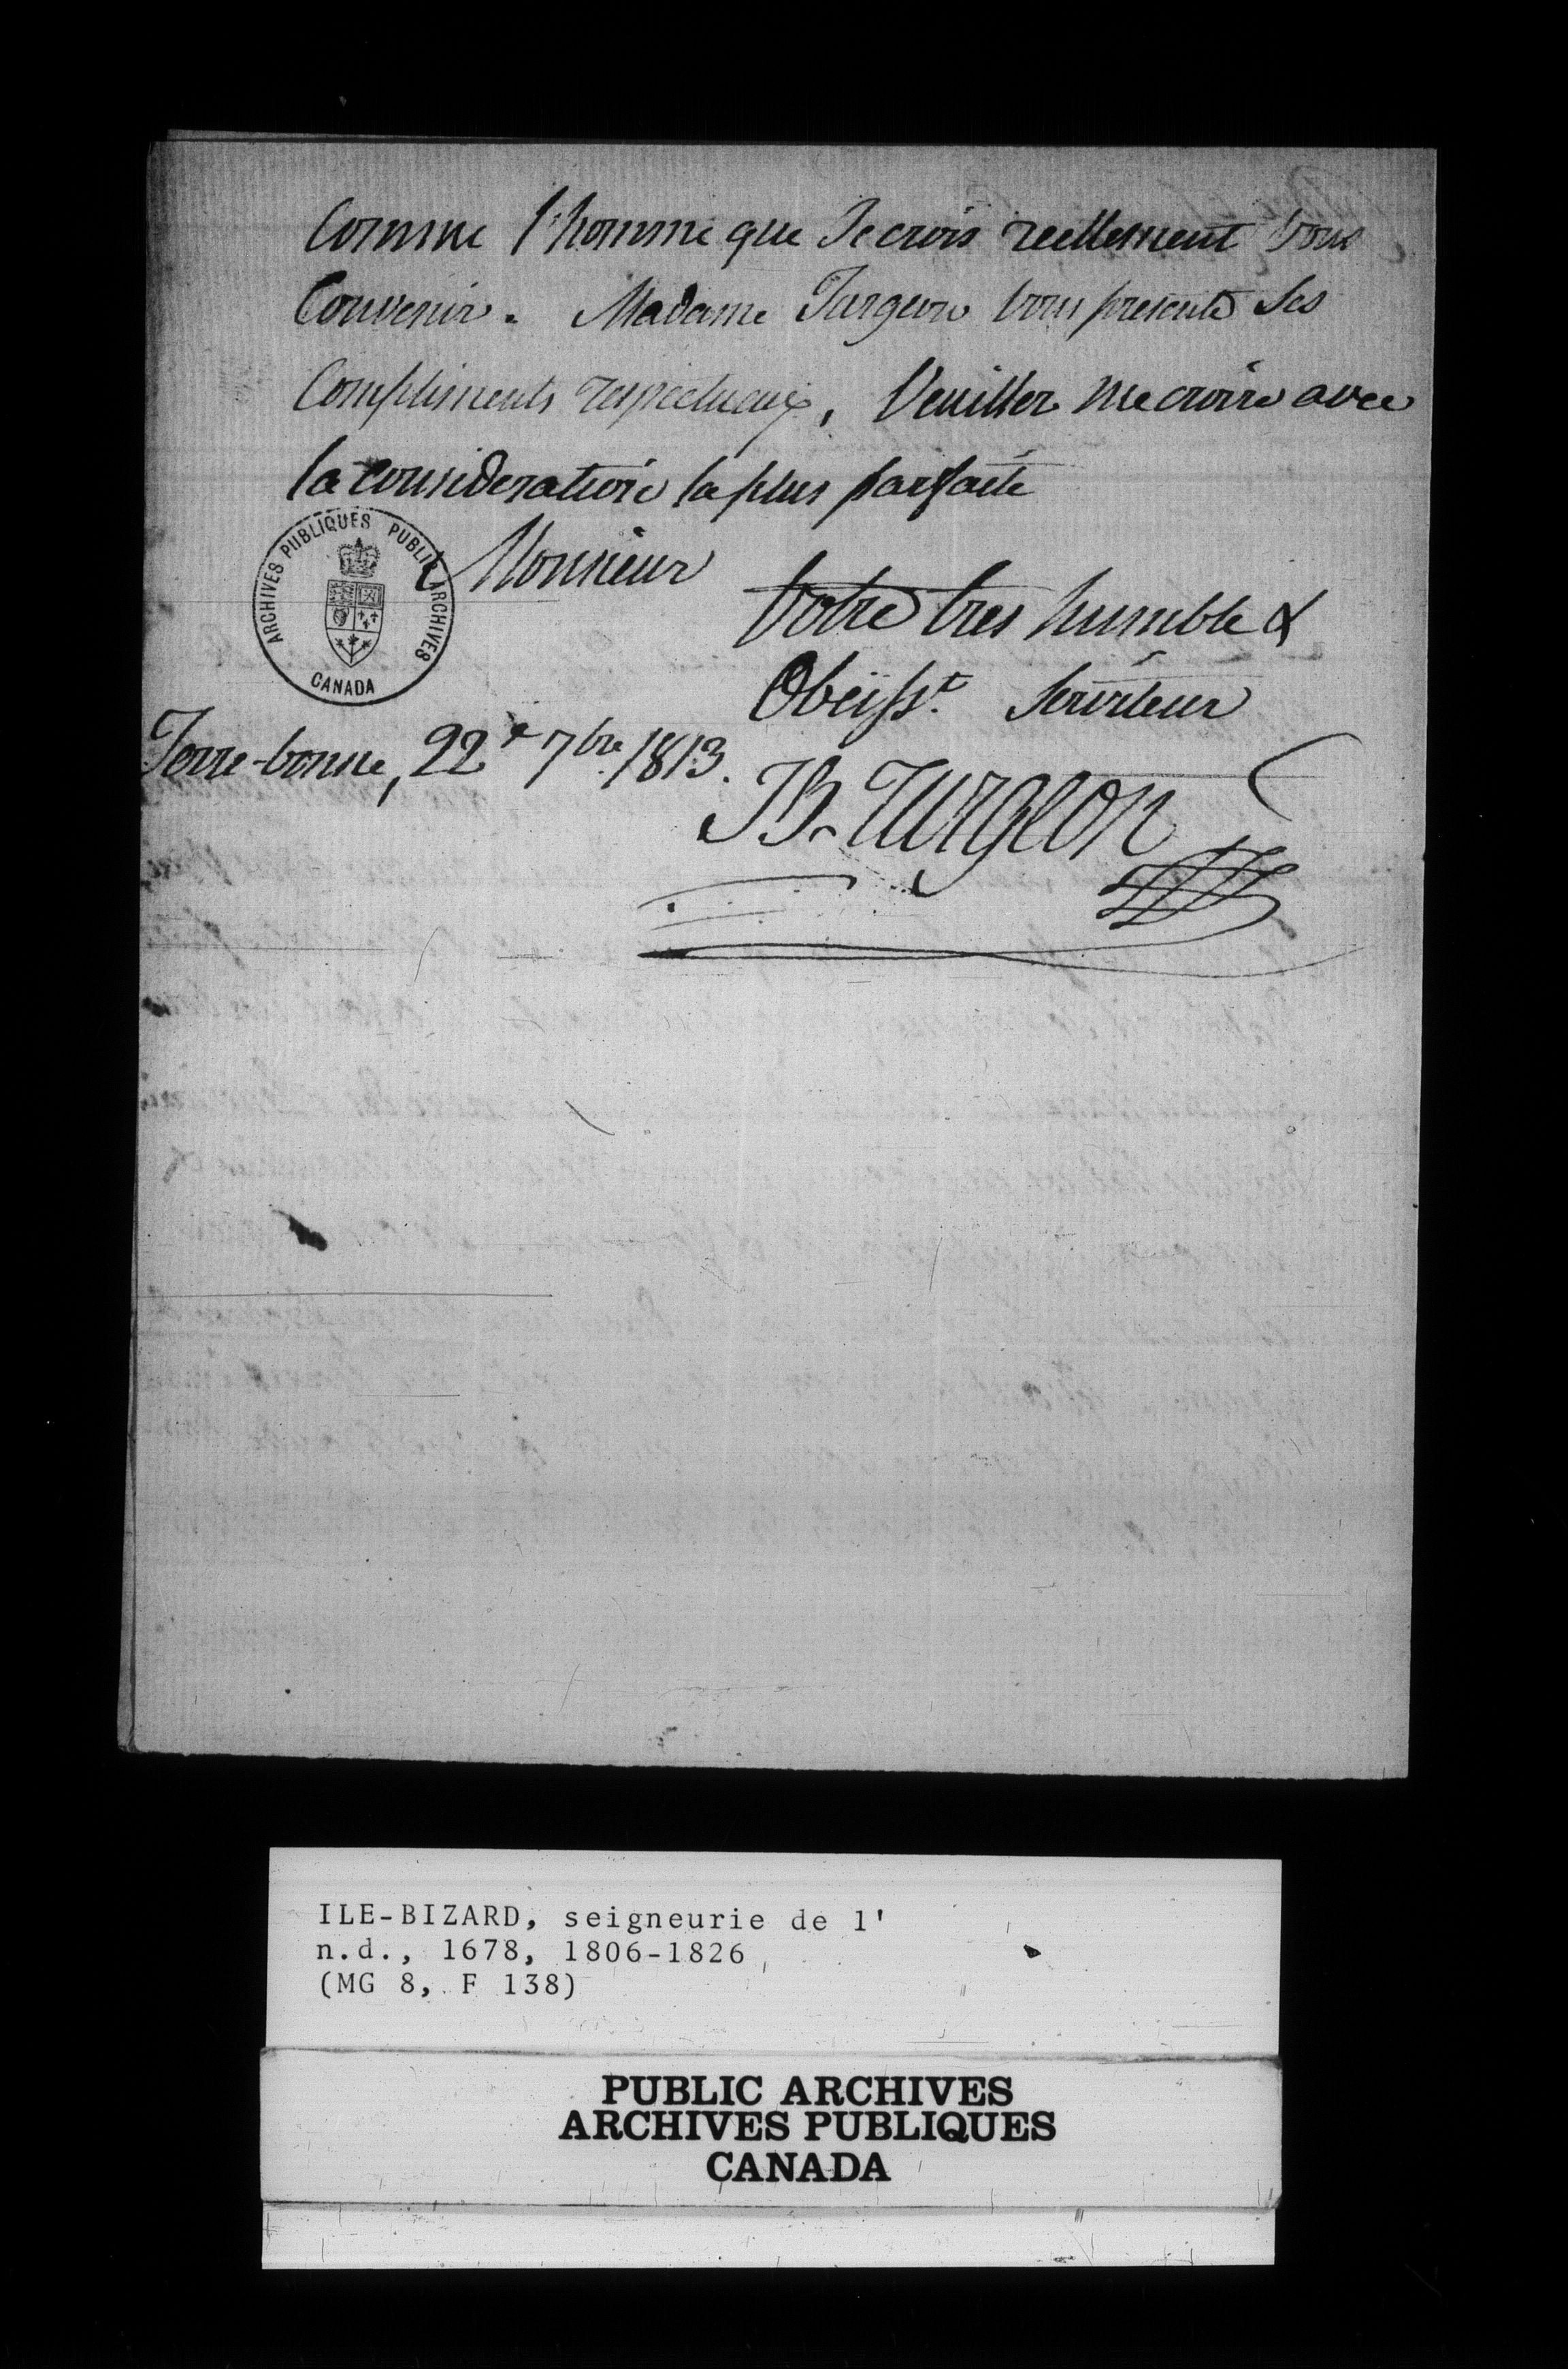 Comme l'homme que Je crois reellement vous
Convenir. Madame Turgeon vous presente Ses
Compliments respectueux, Veuiller me croire avec
la consideration la plus parfaite
Monsieur
Votre tres humble &
Obeisst. Serviteur
Terre-bonne, 22e 7bre 1813.
JB. Turgeon
ARCHIVES PUBLIQUES PUBLIC ARCHIVES
CANADA
ILE-BIZARD, seigneurie de l'
n.d., 1678, 1806-1826
(MG 8, F 138)
PUBLIC ARCHIVES
ARCHIVES PUBLIQUES
CANADA